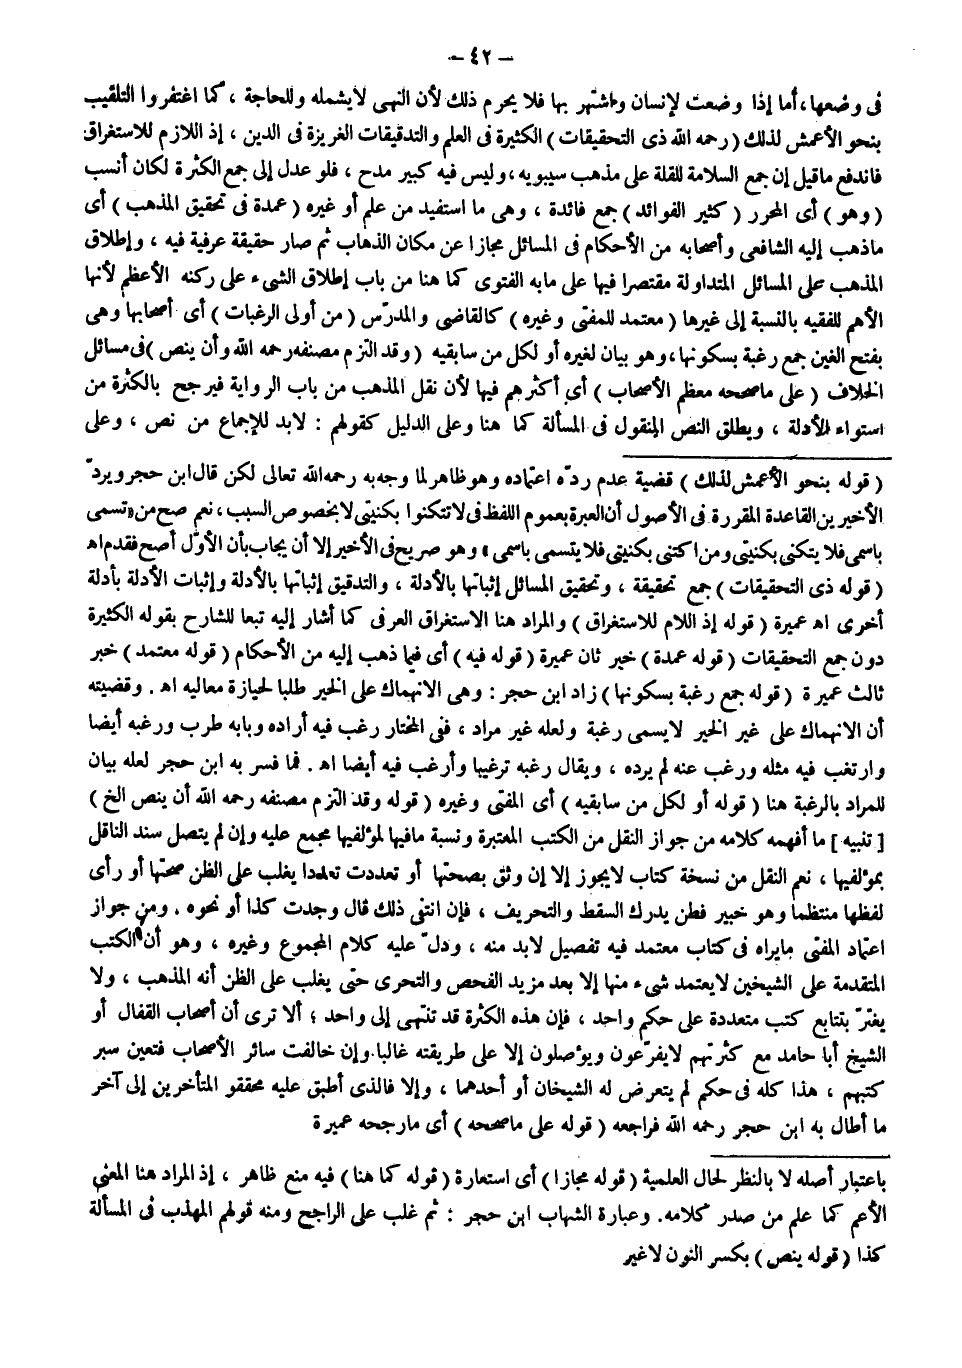 — ٤٢ —
فى وضعها، أما إذا وضعت لإنسان واشتهر بها فلا يحرم ذلك لأن النهى لايشمله وللحاجة ، كما اغتفروا التلقيب
بنحو الأعمش لذلك (رحمه الله ذى التحقيقات) الكثيرة فى العلم والتدقيقات الغزيرة فى الدين ، إذ اللازم للاستغراق
فاندفع ماقيل إن جمع السلامة للقلة على مذهب سيبويه، وليس فيه كبير مدح ، فلو عدل إلى جمع الكثرة لكان أنسب
(وهو) أى المحرر (كثير الفوائد) جمع فائدة ، وهى ما استفيد من علم أو غيره (عمدة فى تحقيق المذهب) أى
ماذهب إليه الشافعى وأصحابه من الأحكام فى المسائل مجازا عن مكان الذهاب ثم صار حقيقة عرفية فيه ، وإطلاق
المذهب على المسائل المتداولة مقتصرا فيها على مابه الفتوى كما هنا من باب إطلاق الشىء على ركنه الأعظم لأنها
الأهم للفقيه بالنسبة إلى غيرها (معتمد للمفتى وغيره) كالقاضى والمدرّس (من أولى الرغبات) أى أصحابها وهى
بفتح الغين جمع رغبة بسكونها، وهو بيان لغيره أو لكل من سابقيه (وقد التزم مصنفه رحمه الله وأن ينص) فى مسائل
الخلاف (على ماصححه معظم الأصحاب) أى أكثرهم فيها لأن نقل المذهب من باب الرواية فيرجح بالكثرة من
استواء الأدلة ، ويطلق النص المنقول فى المسألة كما هنا وعلى الدليل كقولهم : لابد للإجماع من نص ، وعلى
(قوله بنحو الأعمش لذلك) قضية عدم ردّه اعتماده وهو ظاهر لما وجه به رحمه الله تعالى لكن قال ابن حجر ويردّ
الأخيرين القاعدة المقررة فى الأصول أن العبرة بعموم اللفظ فى لا تتكنوا بكنيتى لا بخصوص السبب، نعم صح من « تسمى
باسمى فلا يتكنى بكنيتى ومن اكتنى بكنيتى فلا يتسمى باسمى » وهو صريح فى الأخير إلا أن يجاب بأن الأوّل أصح فقدم اه
(قوله ذى التحقيقات) جمع تحقيقة ، وتحقيق المسائل إثباتها بالأدلة ، والتدقيق إثباتها بالأدلة وإثبات الأدلة بأدلة
أخرى اه عميرة (قوله إذ اللام للاستغراق) والمراد هنا الاستغراق العرفى كما أشار إليه تبعا للشارح بقوله الكثيرة
دون جمع التحقيقات (قوله عمدة) خبر ثان عميرة (قوله فيه) أى فيما ذهب إليه من الأحكام (قوله معتمد) خبر
ثالث عميرة (قوله جمع رغبة بسكونها) زاد ابن حجر : وهى الانهماك على الخير طلبا لحيازة معاليه اه . وقضيته
أن الانهماك على غير الخير لايسمى رغبة ولعله غير مراد ، فنى المختار رغب فيه أراده وبابه طرب ورغبه أيضا
وارتغب فيه مثله ورغب عنه لم يرده ، ويقال رغبه ترغيبا وأرغب فيه أيضا اه . فما فسر به ابن حجر لعله بيان
للمراد بالرغبة هنا (قوله أو لكل من سابقيه) أى المفتى وغيره (قوله وقد التزم مصنفه رحمه الله أن ينص الخ)
[تنبيه] ما أفهمه كلامه من جواز النقل من الكتب المعتبرة ونسبة مافيها لمؤلفيها مجمع عليه وإن لم يتصل سند الناقل
بمؤلفيها ، نعم النقل من نسخة كتاب لايجوز إلا إن وثق بصحتها أو تعددت تعددا يغلب على الظن صحتها أو رأى
لفظها منتظما وهو خبير فطن يدرك السقط والتحريف ، فإن انتنى ذلك قال وجدت كذا أو نحوه . ومن جواز
اعتماد المفتى مايراه فى كتاب معتمد فيه تفصيل لابد منه ، ودلّ عليه كلام المجموع وغيره ، وهو أن الكتب
المتقدمة على الشيخين لايعتمد شىء منها إلا بعد مزيد الفحص والتحرى حتى يغلب على الظن أنه المذهب ، ولا
يغترّ بتتابع كتب متعددة على حكم واحد ، فإن هذه الكثرة قد تنتهى إلى واحد ؛ ألا ترى أن أصحاب القفال أو
الشيخ أبا حامد مع كثرتهم لايفرّعون ويؤصلون إلا على طريقته غالبا.وإن خالفت سائر الأصحاب فتعين سبر
كتبهم ، هذا كله فى حكم لم يتعرض له الشيخان أو أحدهما ، وإلا فالذى أطبق عليه محققو المتأخرين إلى آخر
ما أطال به ابن حجر رحمه الله فراجعه (قوله على ماصححه) أى مارجحه عميرة
باعتبار أصله لا بالنظر لحال العلمية (قوله مجازا) أى استعارة (قوله كما هنا) فيه منع ظاهر ، إذ المراد هنا المعنى
الأعم كما علم من صدر كلامه. وعبارة الشهاب ابن حجر : ثم غلب على الراجح ومنه قولهم المهذب فى المسألة
كذا (قوله ينص) بكسر النون لاغير